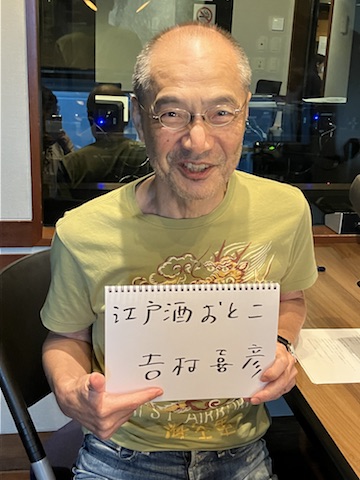 江戸酒おとこ
吉村喜彦